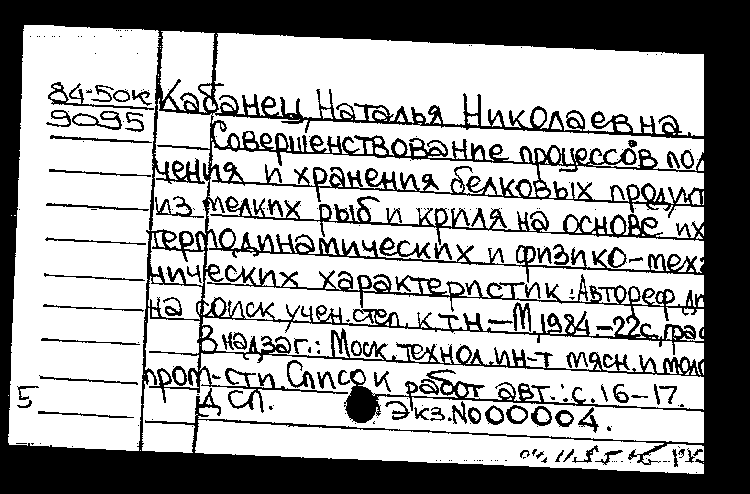 84-50к Кабанец, Наталья Николаевна.
9095 Совершенствование процессов пол
чения и хранения белковых продукт
из мелких рыб и криля на основе их
термодинамических и физико-меха
нических характеристик: Автореф. ди
на соиск. учен. степ. к.т.н. - М, 1984 - 22с, граф
В надзаг.: Моск. технол. ин-т мясн. и моло
пром-сти. Список работ авт.: с. 16-17.
5 ДСП. Экз. №000004.
РК